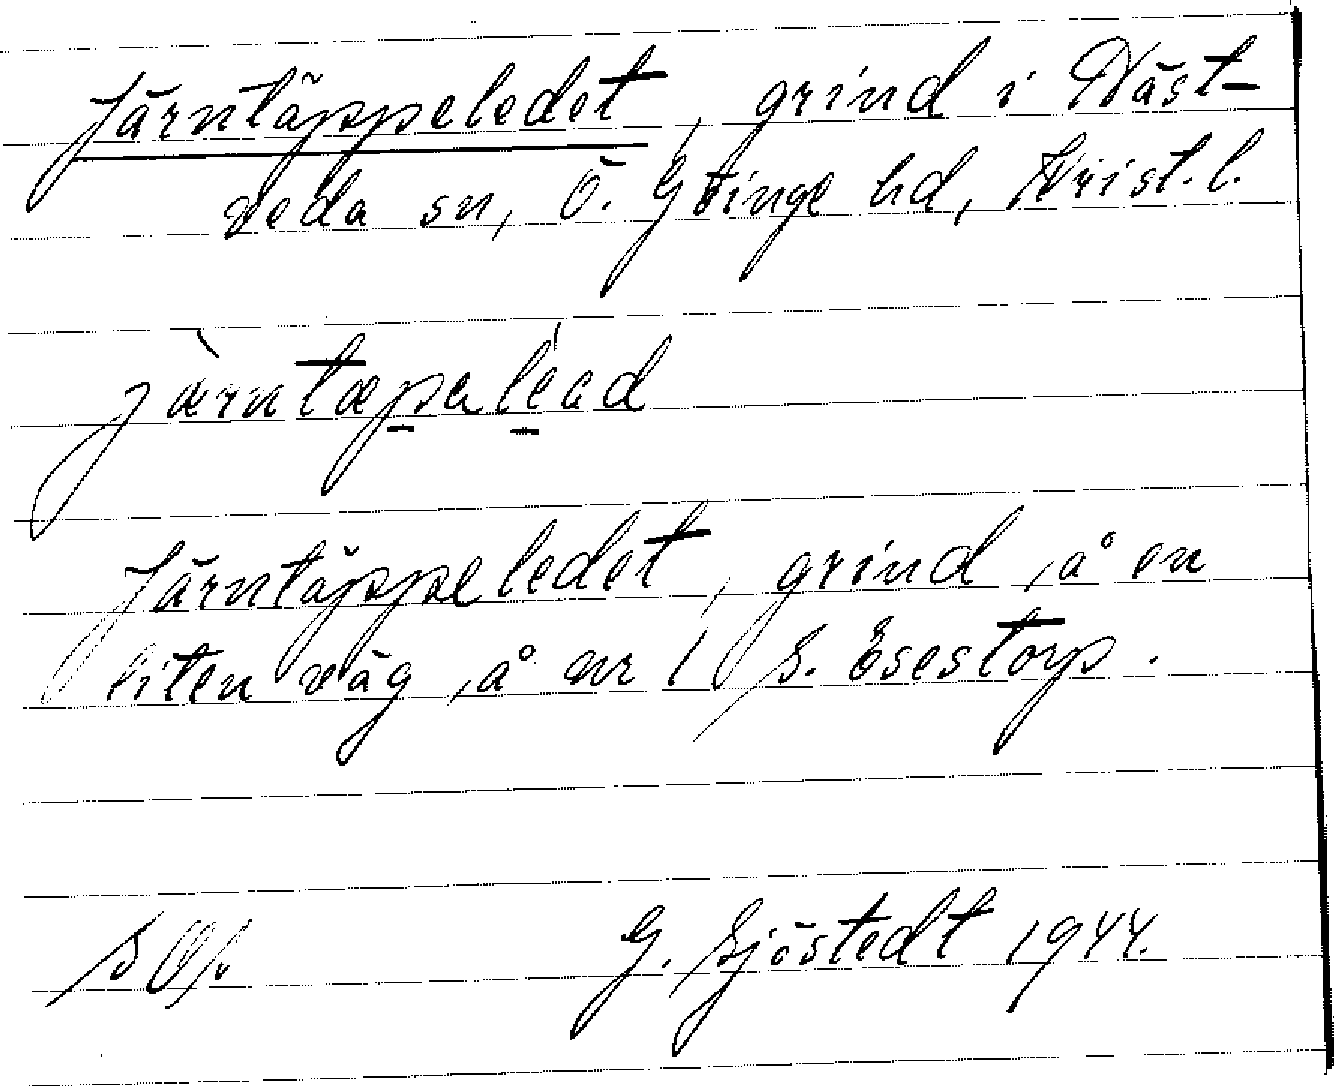 Järntäppeledet, grind i Näst-
veda sn, Ö. Göinge hd, Krist. l.
jærntæpeléad
Järntäppeledet, grind, å en
liten väg, å nr 1 S. Esestorp.
G. Sjöstedt 1944.